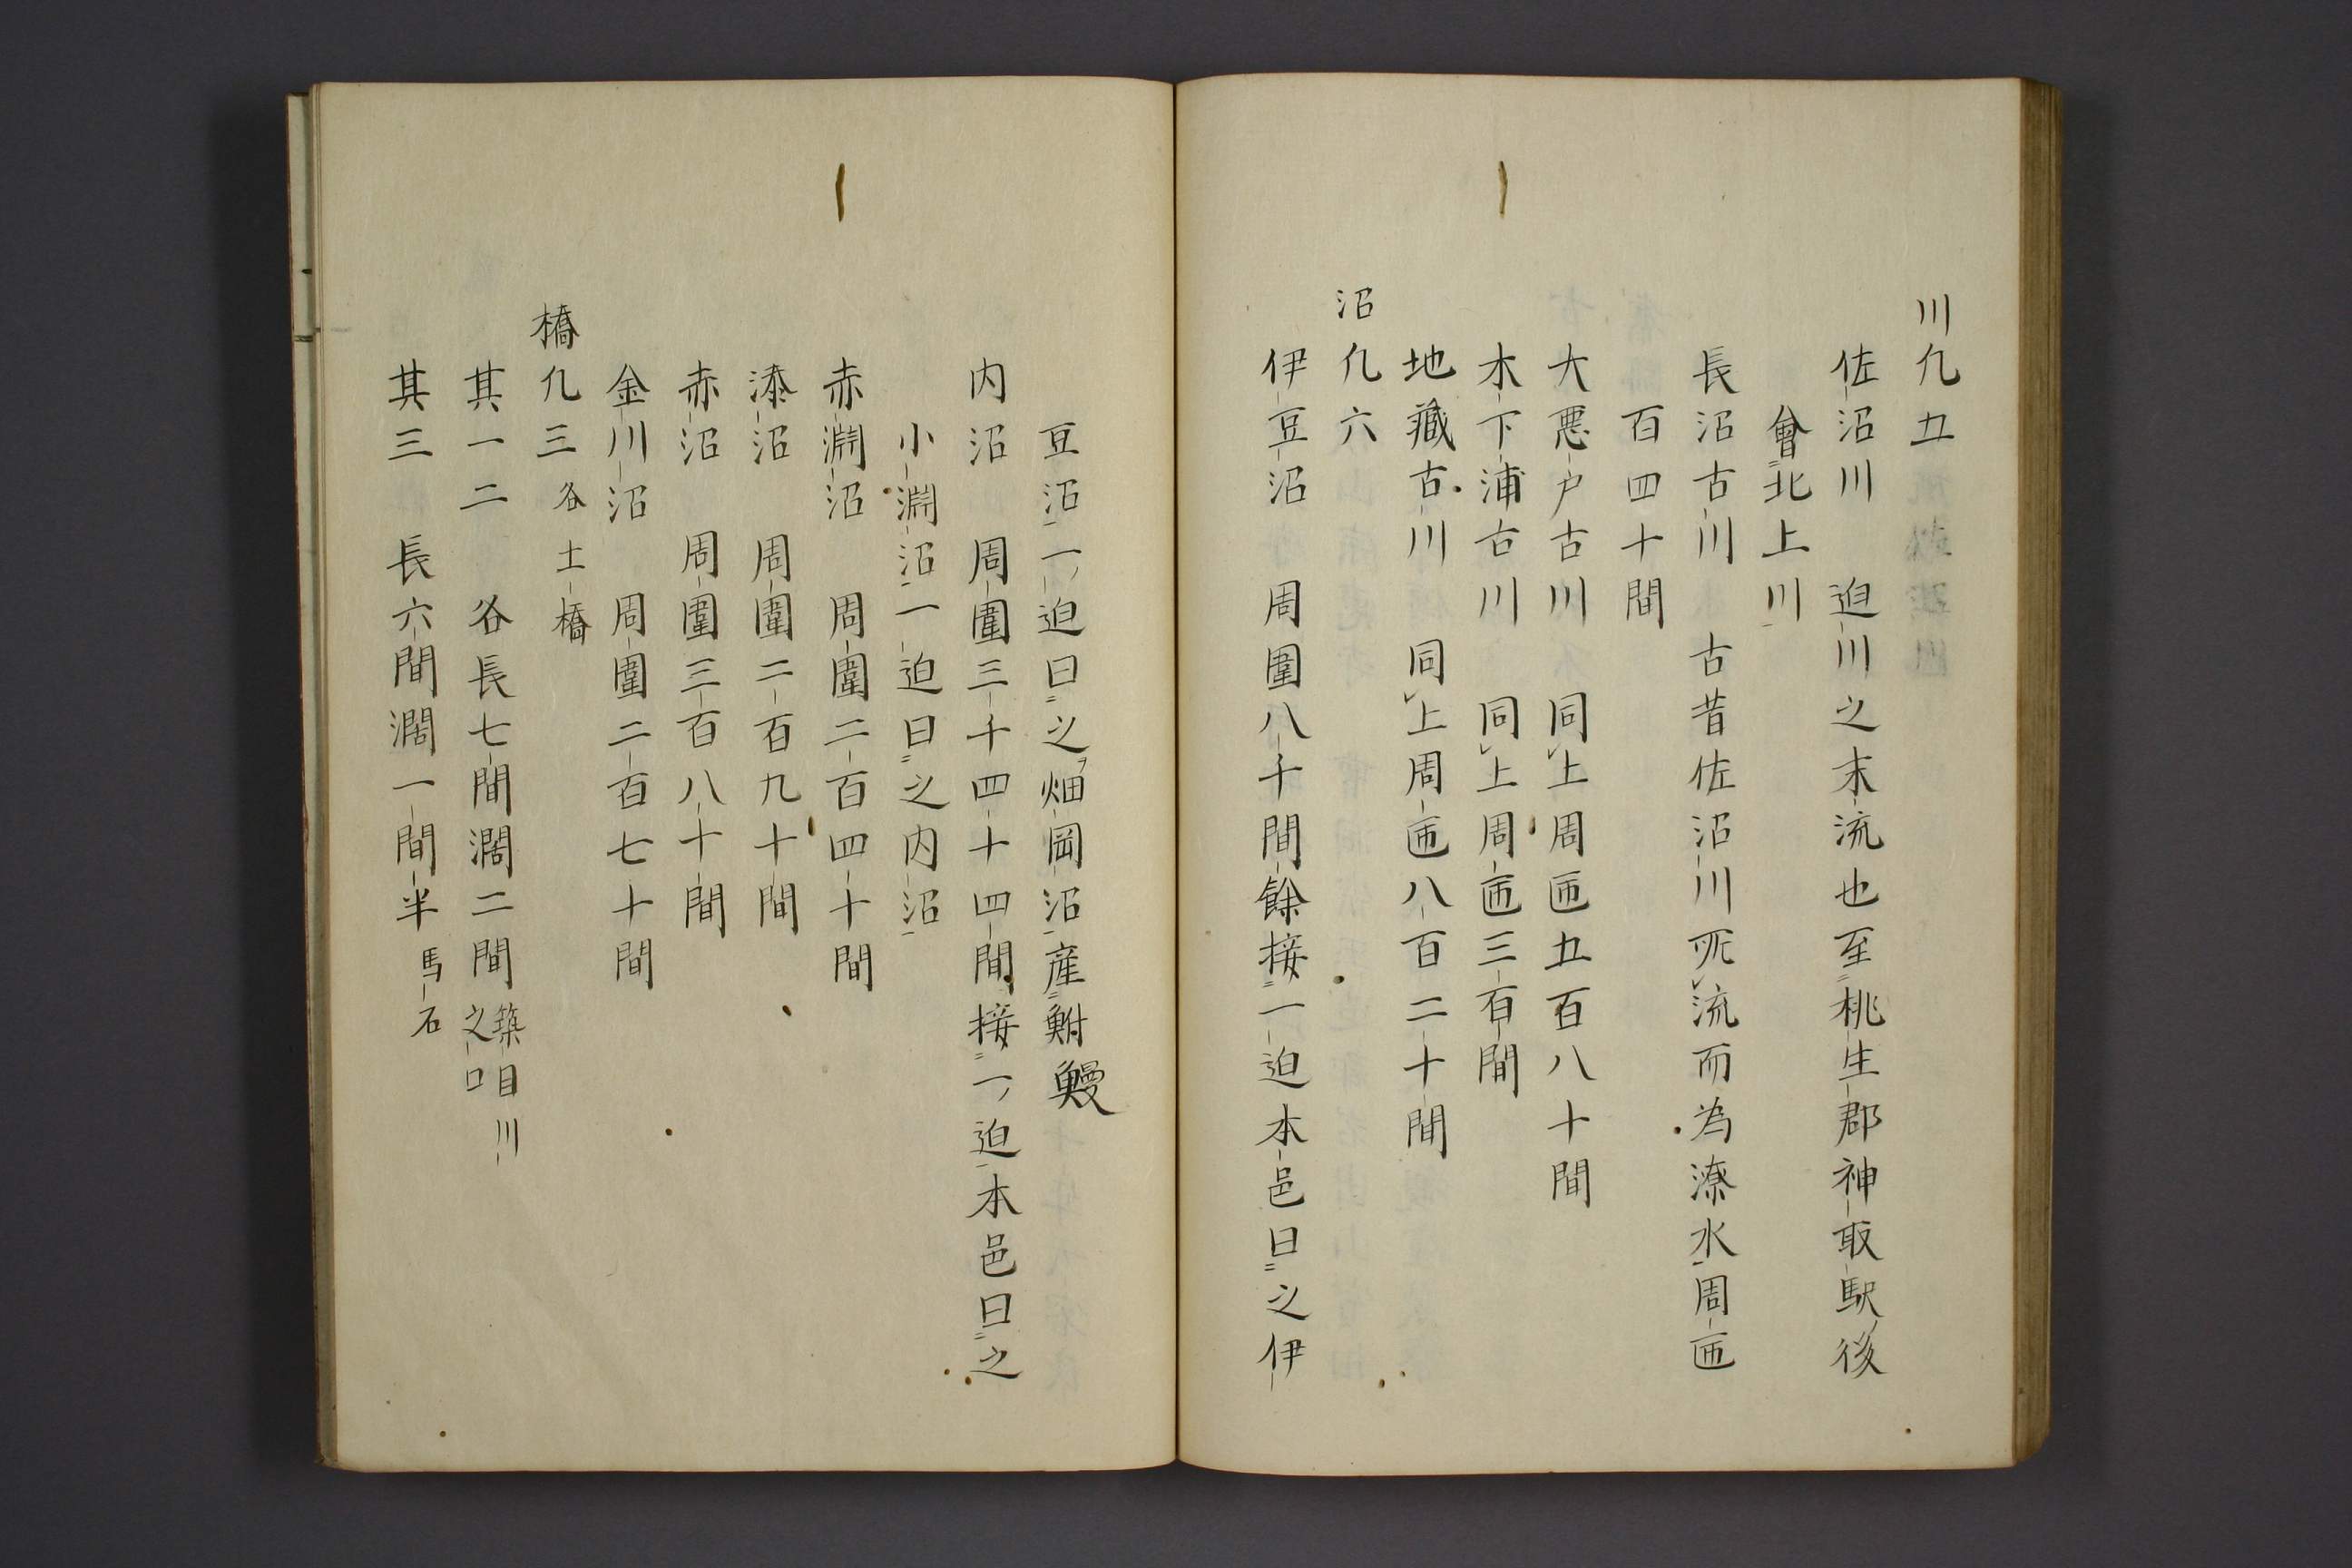 川凢五
佐沼川　迫川之末流也至桃生郡神取駅後
會北上川
長沼古川　古昔佐沼川所流而為潦水周匝
百四十間
大悪戸古川　同上周匝五百八十間
木下浦古川　同上周匝三百間
地藏古川　同上周匝八百二十間
沼凢六
伊豆沼　周圍八千間餘接一迫本邑曰之伊
豆沼一迫曰之畑岡沼産鮒鰻
内沼　周圍三千四十四間接一迫本邑曰之
小淵沼一迫曰之内沼
赤淵沼　周圍二百四十間
漆沼　周圍二百九十間
赤沼　周圍三百八十間
金川沼　周圍二百七十間
橋凢三各土橋
其一二　各長七間濶二間築目川之口
其三　長六間濶一間半馬石